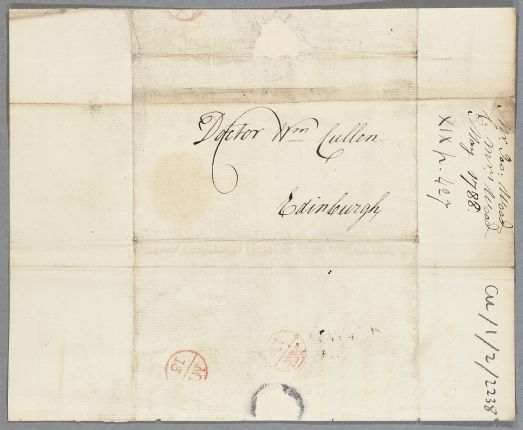 Doctor Wm Cullen
Edinburgh
Mr Jas: Wood
May 1788.
XIX p. 427
Cul/1/2/2238
13